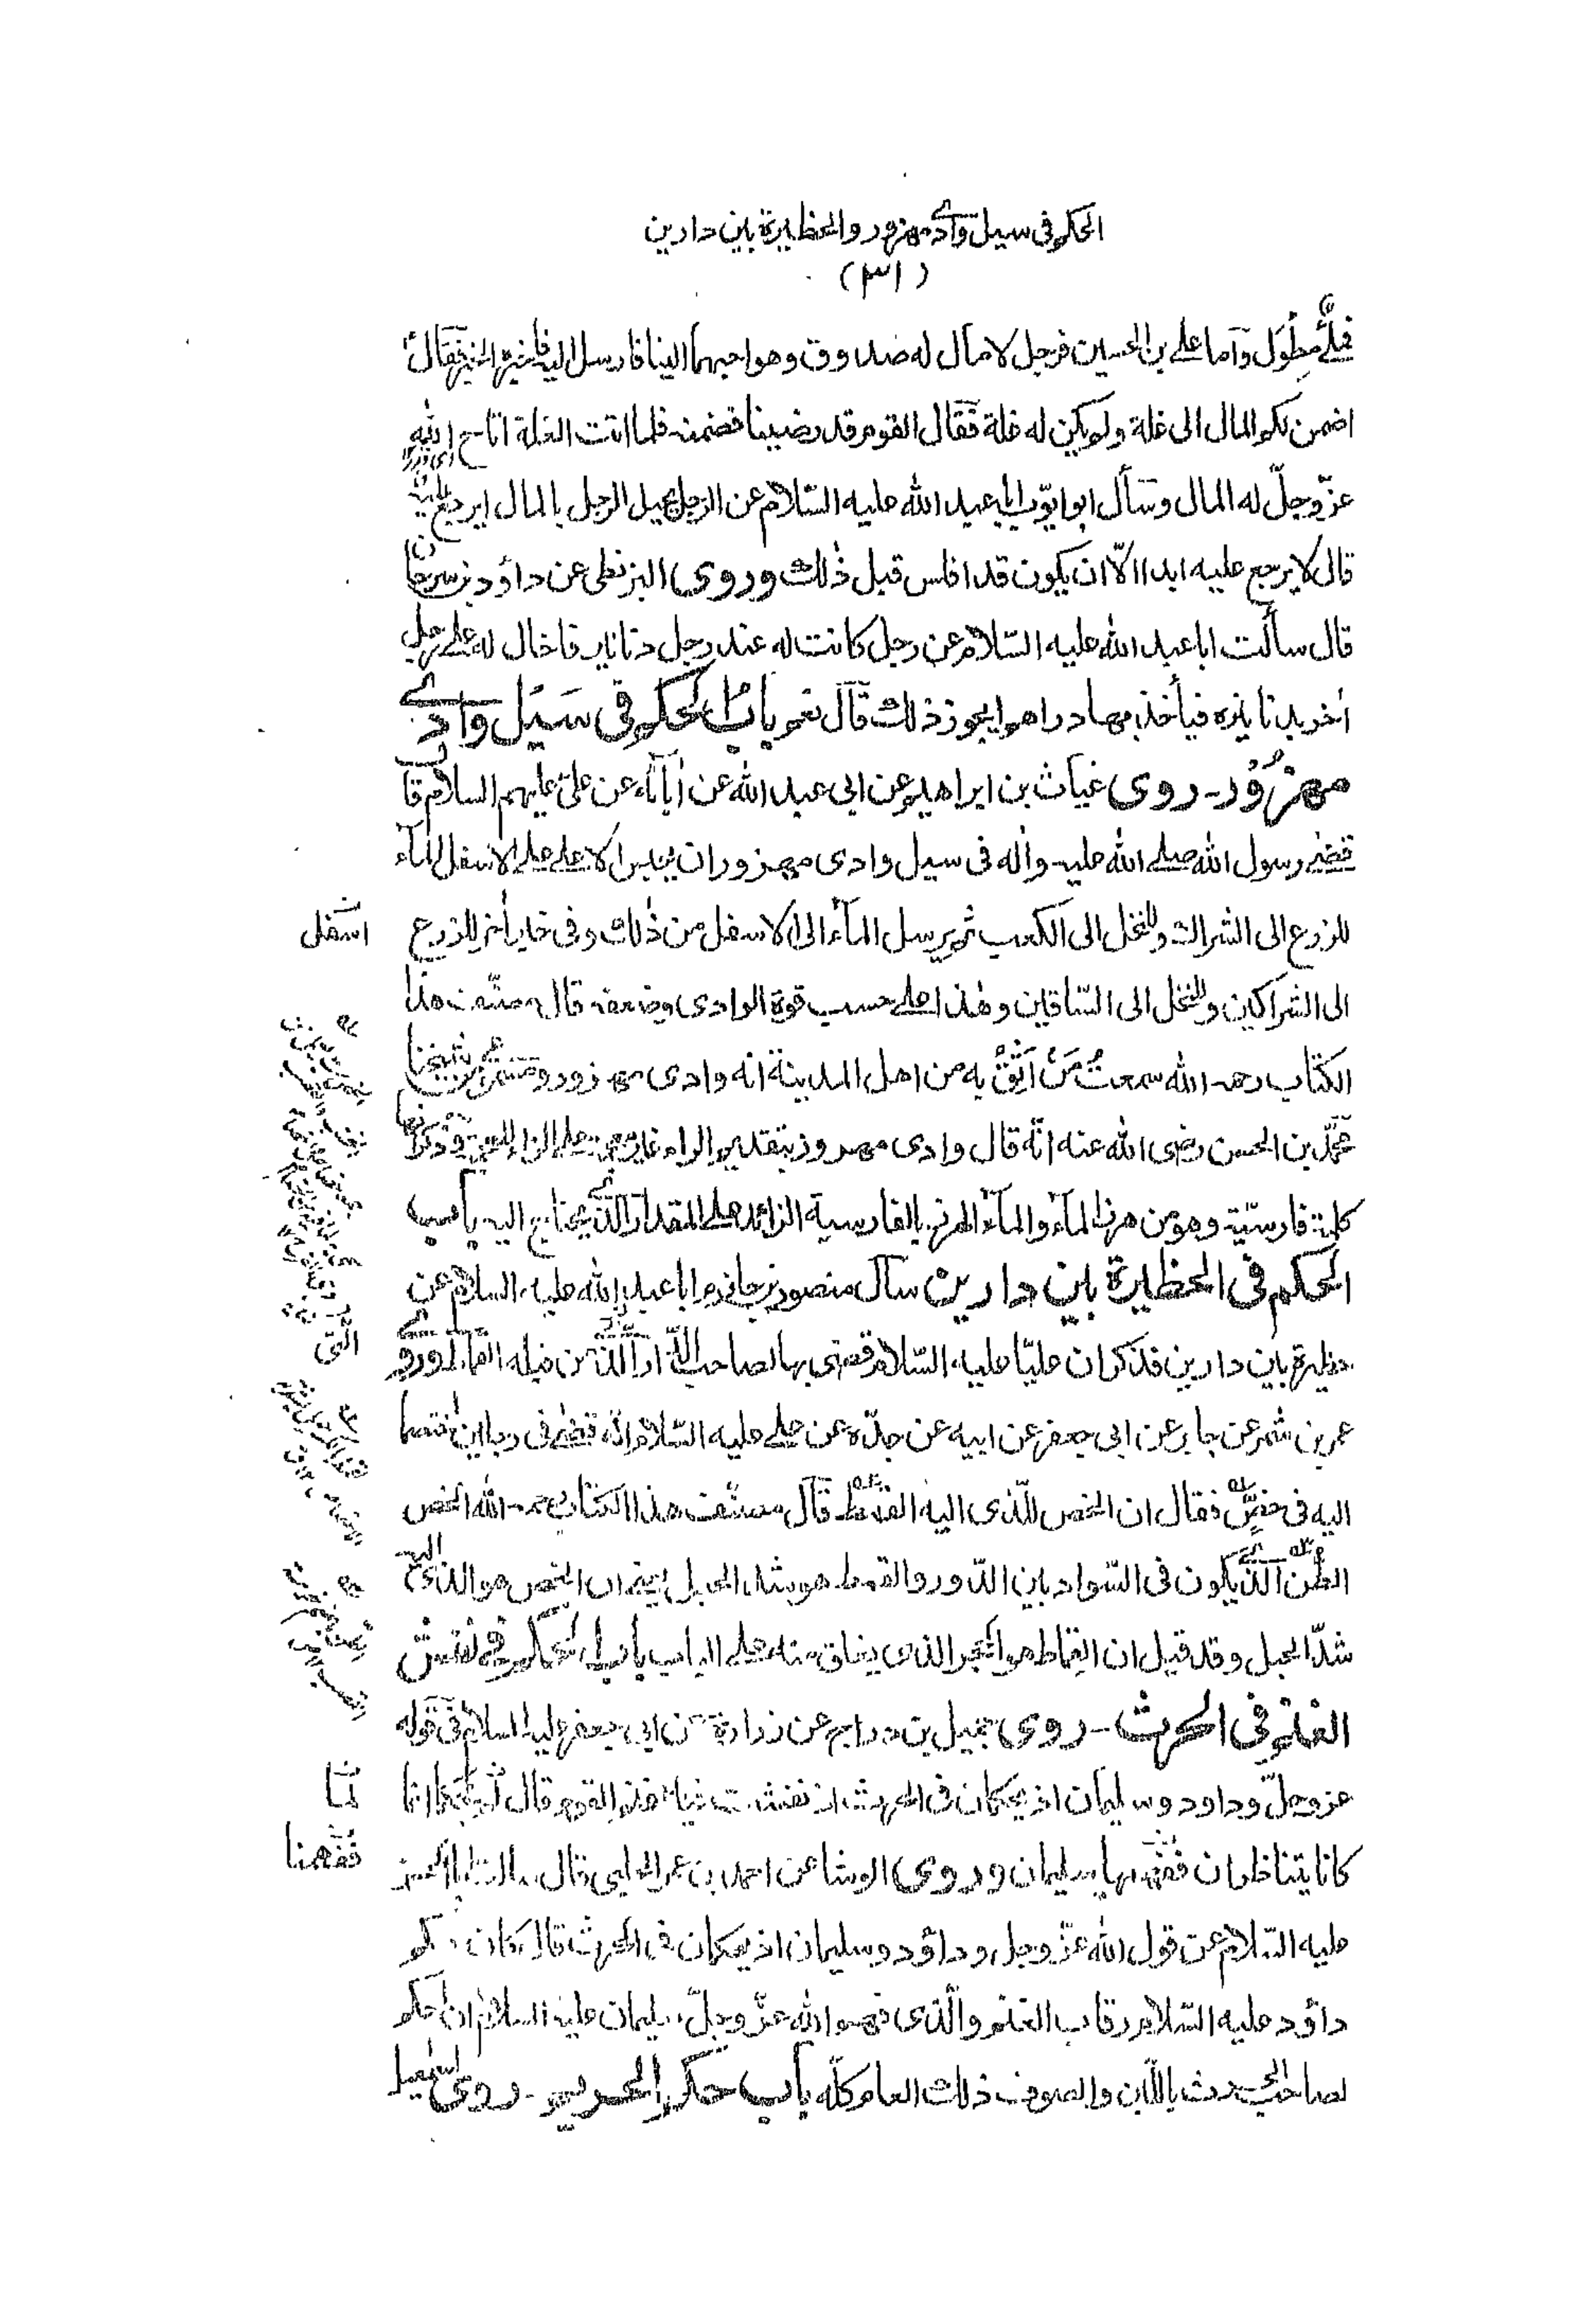 الحكم فى سيل وادى مهزور والحظيرة بين دارين
(٣١)
فملئ مطول وأما على بن الحسين فرجل لا مال له صدوق وهو احبهما الينا فارسل اليه فقال
اضمن لكم المال الى غلة ولم يكن له غلة فقال القوم قد رضينا فضمنه فلما اتت الغلة اتاح الله
عزّ وجلّ له المال وسأل ابو ايّوب ابا عبد الله عليه السّلام عن الرجل يحيل الرجل بالمال ايرجع عليه
قال لا يرجع عليه ابدا الّا ان يكون قد افلس قبل ذلك وروى البزنطى عن داؤد بن سرحان
قال سألت ابا عبد الله عليه السّلام عن رجل كانت له عند رجل دنانير فاحال له على رجل
اخر بدنانيره فيأخذ بها دراهم ايجوز ذلك قال نعم باب الحكم فى سيل وادى
مهزور - روى غياث بن ابراهيم عن ابى عبد الله عن آبائه عن على عليهم السلام قال
قضى رسول الله صلى الله عليه واله فى سيل وادى مهزور ان يحبس الاعلى على الاسفل الماء
للزرع الى الشراك وللنخل الى الكعب ثم يرسل الماء الى الاسفل من ذلك وفى خبر اخر للزرع
اسفل
الى الشراكين وللنخل الى السّاقين وهذا على حسب قوة الوادى وضعفه قال مصنّف هذا
الكتاب رحمه الله سمعت من اثق به من اهل المدينة انه وادى مهزور ومسموعى من شيخنا
محمّد بن الحسن رضى الله عنه انّه قال وادى مهروز بتقديم الراء غير المعجمة على الزاء المعجمة وذكر انها
كلمة فارسيّة وهو من هرز الماء والماء الهرز بالفارسية الزائد على المقدار الذى يحتاج اليه باب
الحكم فى الحظيرة بين دارين سأل منصور بن حازم ابا عبد الله عليه السلام عن
حظيرة بين دارين فذكر ان عليّا عليه السّلام قضى بها لصاحب الدار الذى من قبله القماط وروى
الّتى
عمر بن شمر عن جابر عن ابى جعفر عن ابيه عن جدّه عن على عليه السّلام انّه قضى فى رجلين اختصما
اليه فى خصّ فقال ان الخص للّذى اليه القمط قال مصنّف هذا الكتاب رحمه الله الخص
الطن الّذى يكون فى السّواد بين الدّور والقمط هو شد الحبل يعنى ان الخص هو الذى اليه
شدّ الحبل وقد قيل ان القماط هو الحجر الذى يغلق منه على الباب باب الحكم فى نفش
الغنم فى الحرث - روى جميل بن دراج عن زرارة عن ابى جعفر عليه السلام فى قوله
عزّ وجلّ وداود وسليمان اذ يحكمان فى الحرث اذ نفشت فيه غنم القوم قال لم يحكما انما
لمّا
كانا يتناظران ففهّمها سليمان وروى الوشا عن احمد بن عمر الحلبى قال سالت ابا الحسن
ففهمنا
عليه السّلام عن قول الله عزّ وجل وداؤد وسليمان اذ يحكمان فى الحرث قال كان حكم
داؤد عليه السّلام رقاب الغنم والّذى فهم الله عزّ وجلّ سليمان عليه السلام ان حكم
لصاحب الحرث باللّبن والصوف ذلك العام كلّه باب حكم الحريم - روى اسمعيل